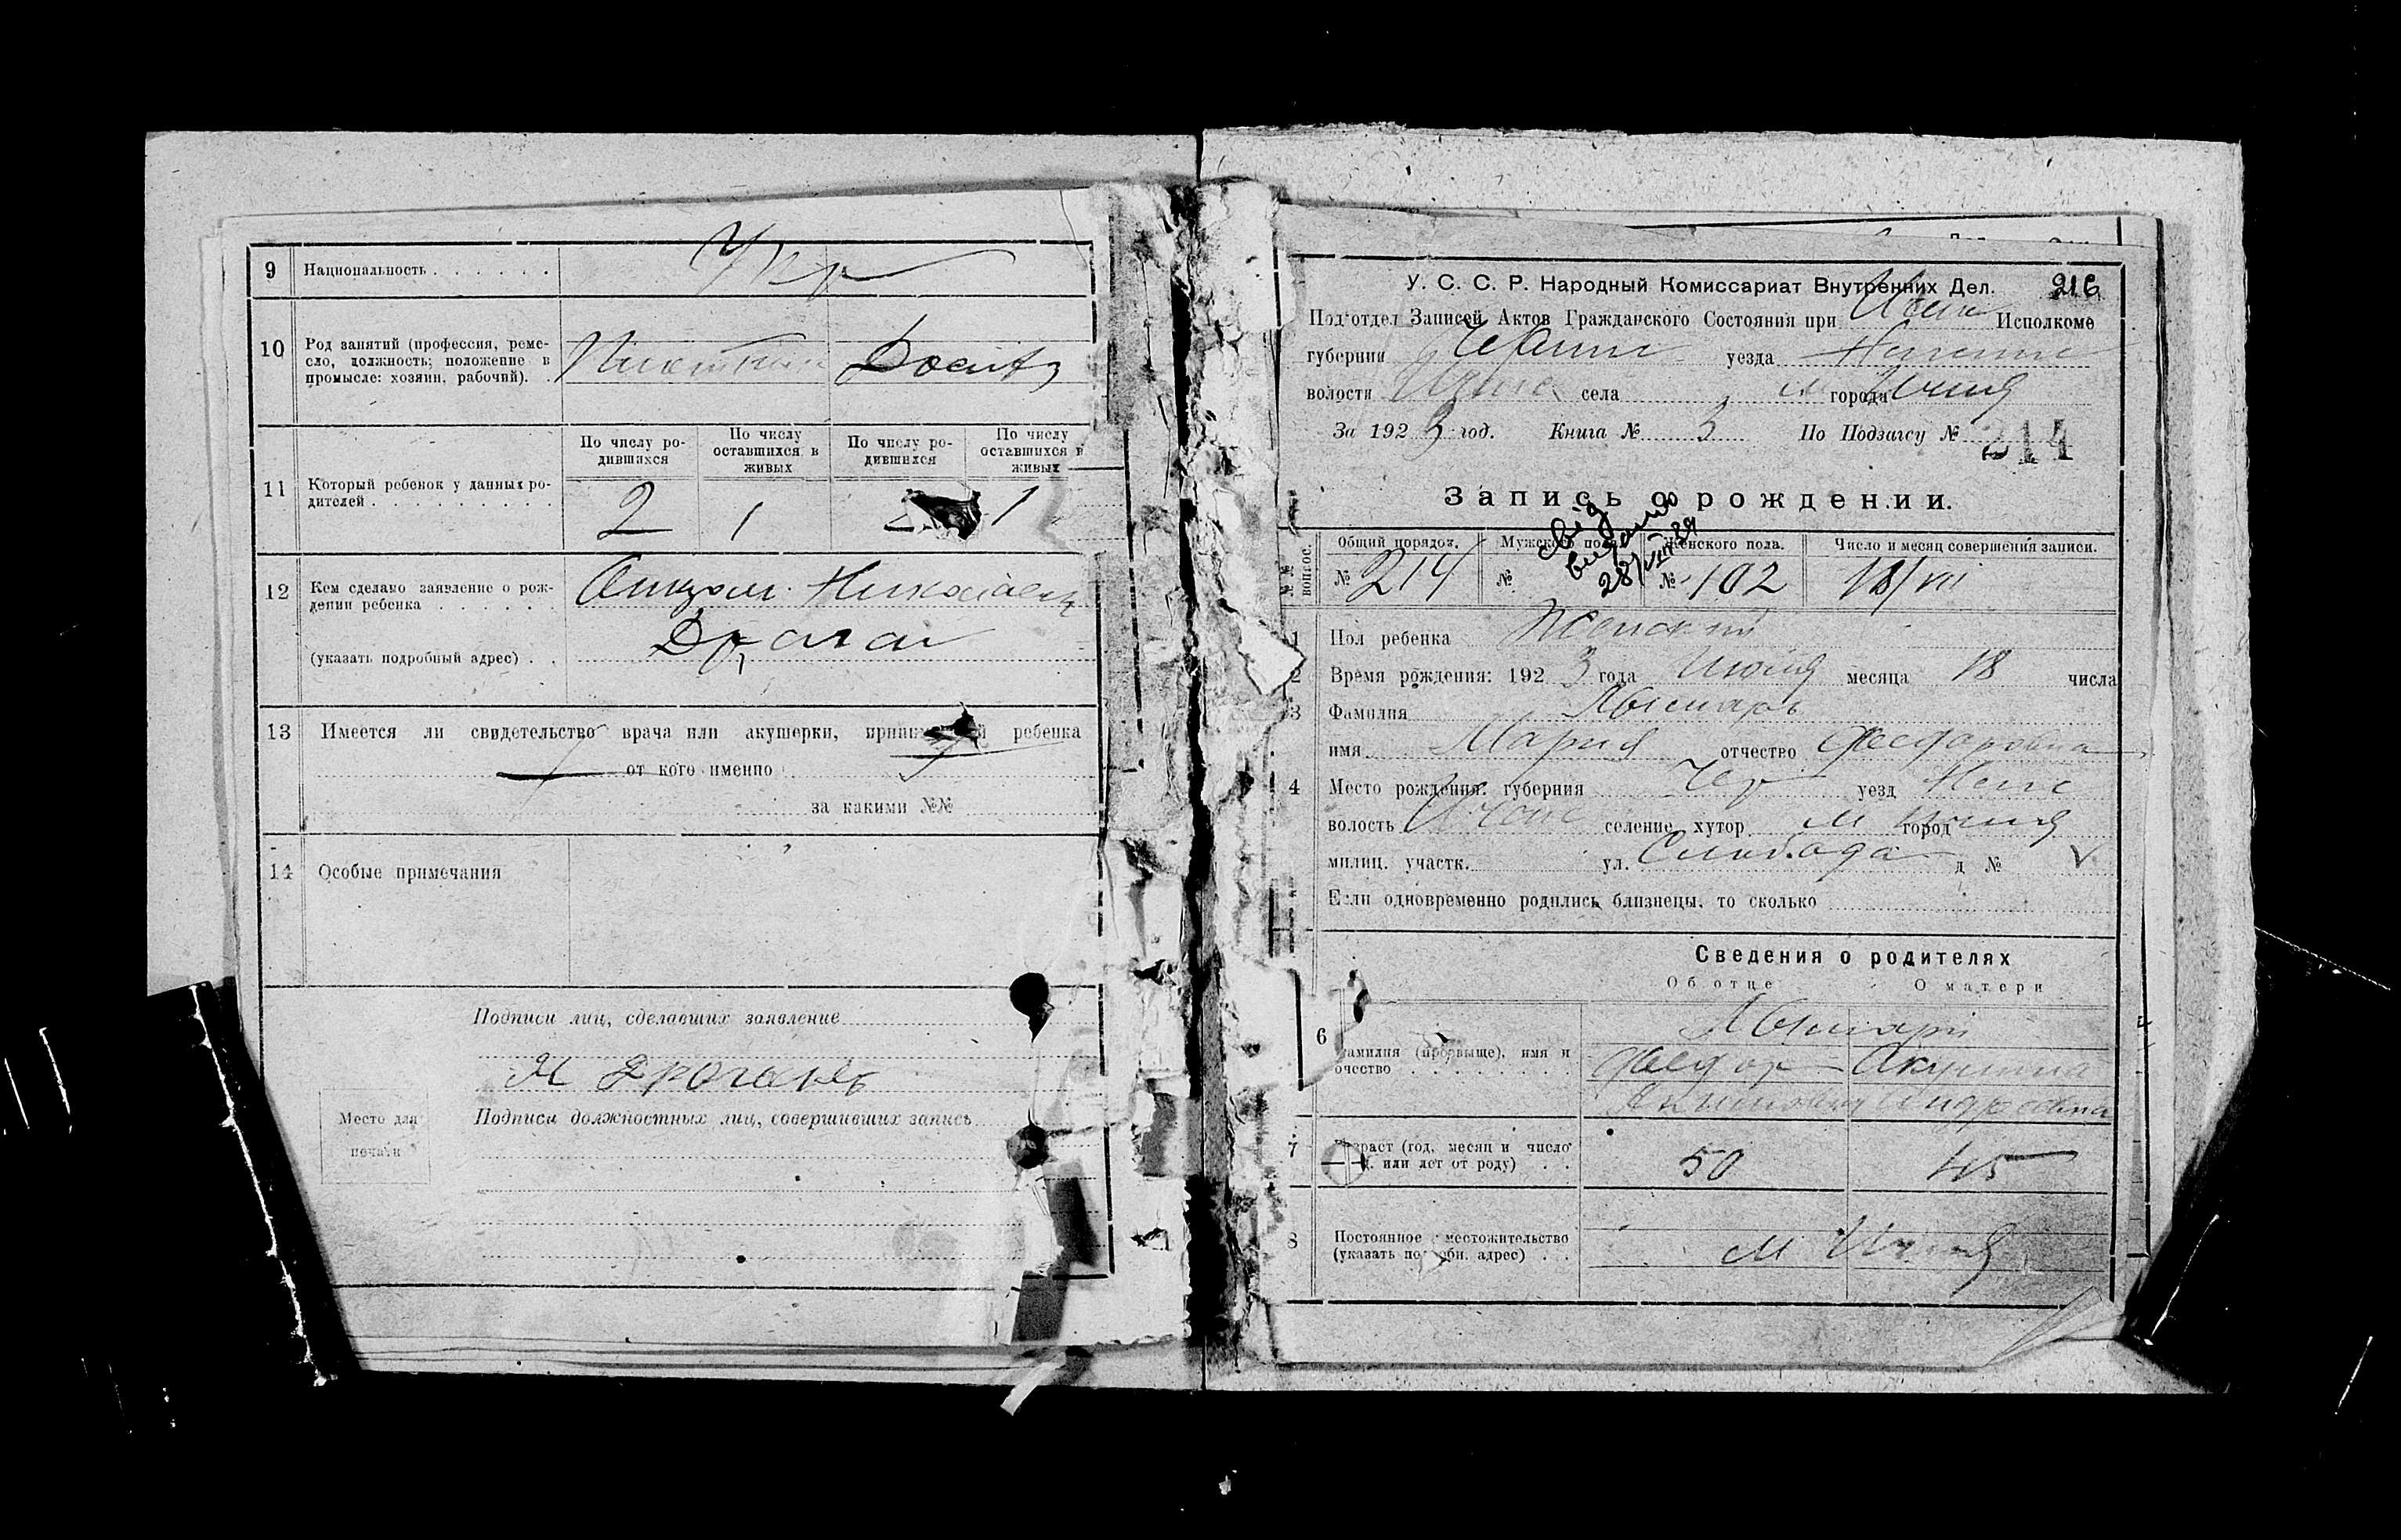 9 Национальность . . . . . . Укр
10 Род занятий (профессия, реме-
сло, должность; положение в
промысле: хозяин, рабочий). .
11 Который ребенок у данных ро-
дителей . . . . . . . . .
По числу ро-
дившихся
По числу
оставшихся в
живых
По числу ро-
дившихся
По числу
оставшихся в
живых
2 1 2 1
12 Кем сделано заявление о рож-
дении ребенка . . . . . .
(указать подробный адрес) . .
13 Имеется ли свидетельство врача или акушерки, ребенка
от кого именно
за какими №№
14 Особые примечания
Подписи лиц, сделавших заявление
Подписи должностных лиц, совершивших запись
Место для
печати
У. С. С. Р. Народный Комиссариат Внутренних Дел. 216
Под'отдел Записей Актов Гражданского Состояния при Исполкоме
губернии уезда
волости села м города Ичня
За 1923 год. Книга № 3 По Подзагсу № 214
Запись о рождении.
свід
видано
28/VIII 39
№№ вопрос.
Общий порядок. Мужского пола. Женского пола. Число и месяц совершения записи.
№ 214 № № 102 18/VII
1 Пол ребенка Женский
2 Время рождения: 1923 года Июля месяца 18 числа
3 Фамилия
имя Мария отчество Федоровна
4 Место рождения: губерния Чер уезд Неж
волость селение хутор м город Ичня
милиц. участк. ул. Слобода д № V
Если одновременно родились близнецы, то сколько
Сведения о родителях
Об отце О матери
6 Фамилия (прозвыще), имя и
очество . . . . . . . .
Федор Акулина
Андреевна
7 Возраст (год, месяц и число
или лет от роду) . . 50 45
8 Постоянное местожительство
(указать подробн. адрес) . . м Ичня